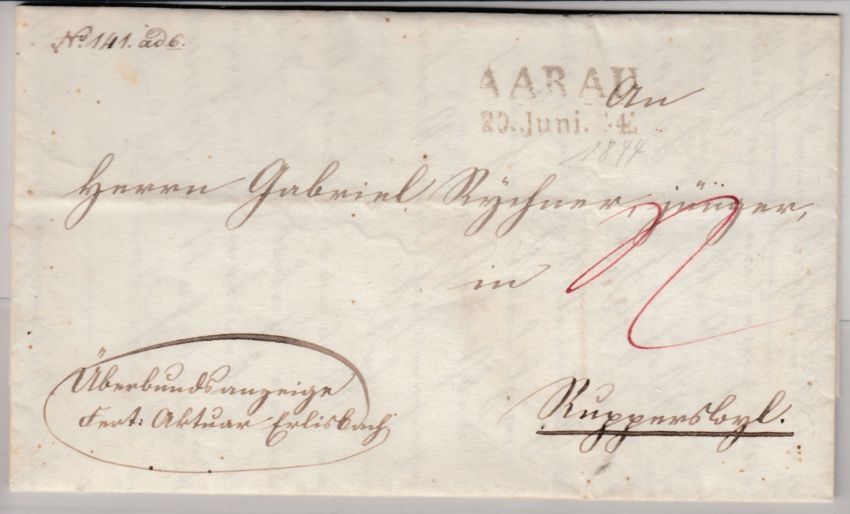 No. 141. ad 6.
AARAU
20. Juni. 4
An
1844
Herrn Gabriel Rychner, jünger,
in
Rupperswyl.
Überbundsanzeige
Fert: Aktuar Erlisbach